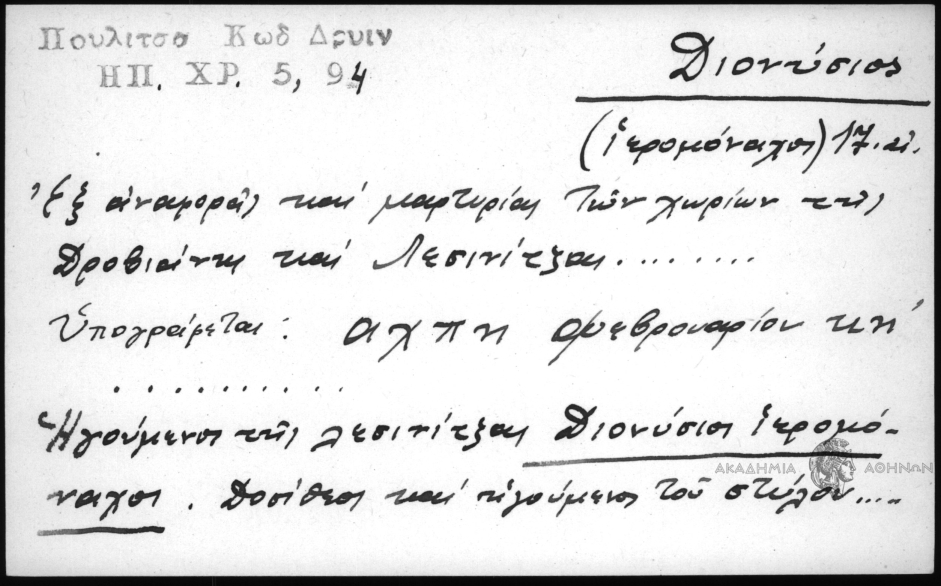 Πουλιτσα Κωδ Δρυιν
ΗΠ. ΧΡ. 5, 94
Διονύσιος
(ἱερομόναχος) 17. αἰ.
Ἐξ ἀναφορᾶς καὶ μαρτυρίας τῶν χωρίων τῆς
Δροβιάνης καὶ Λεσινίτζας........
Ὑπογράφεται: αχπη φευβρουαρίου κη΄
...........
Ἡγούμενος τῆς λεσινίτζας Διονύσιος ἱερομό-
ναχος. Δοσίθεος καὶ ἡγούμενος τοῦ στύλου.....
ΑΚΑΔΗΜΙΑ ΑΘΗΝΩΝ